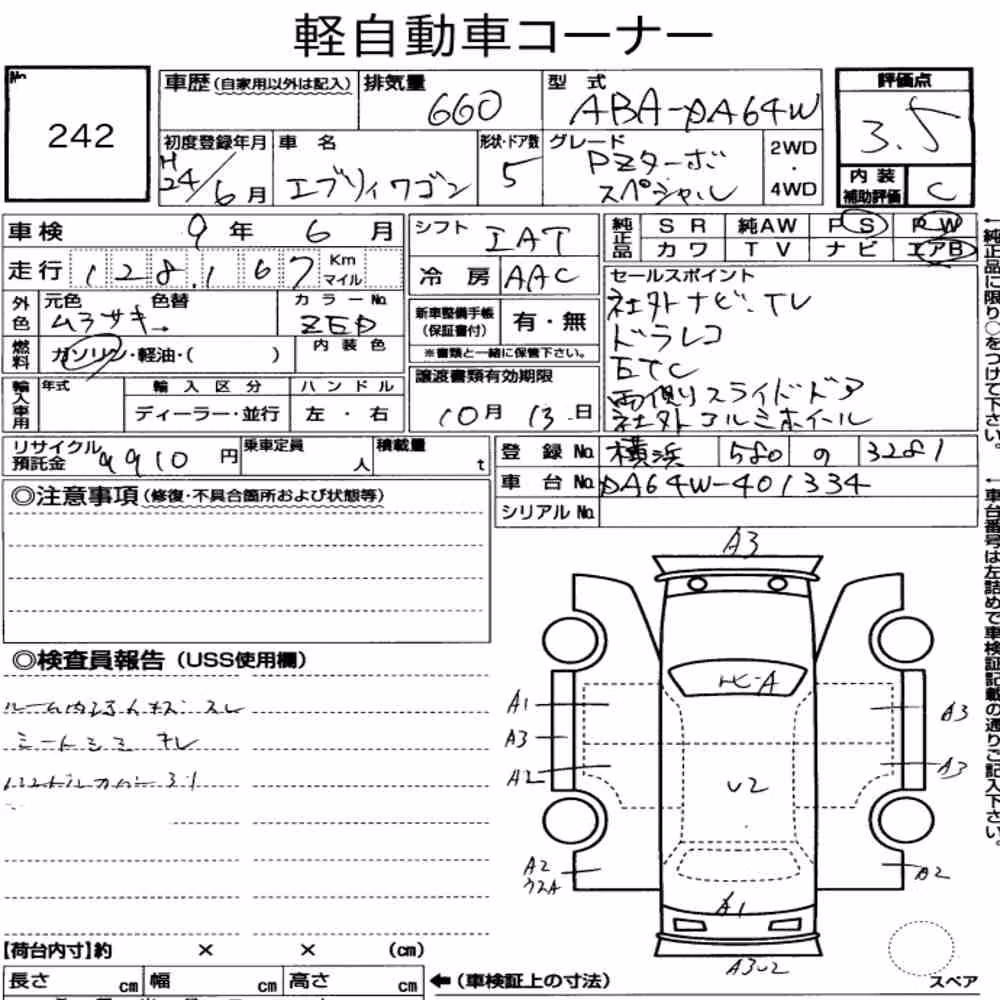 軽自動車コーナー
No. 242
車歴(自家用以外は記入) 排気量 660 型式 ABA-DA64W 評価点 3.5
初度登録年月 H24/6月 車名 エブリィワゴン 形状・ドア数 5 グレード PZターボ スペシャル 2WD・4WD 内装補助評価 C
車検 9年 6月 シフト IAT 純正品 SR 純AW PS PW
カワ TV ナビ エアB
走行 128,167 Km マイル 冷房 AAC セールスポイント
社外ナビ.TV
外色 元色 ムラサキ 色替 カラーNo. ZED 新車整備手帳(保証書付) 有・無 ドラレコ
燃料 ガソリン・軽油・( ) 内装色 ※書類と一緒に保管下さい。 ETC
輸入車用 年式 輸入区分 ハンドル 譲渡書類有効期限 両側スライドドア
ディーラー・並行 左・右 10月 13.日 社外アルミホイール
リサイクル預託金 9910円 乗車定員 人 積載量 t 登録No. 横浜 580 の 3281
車台No. DA64W-401334
シリアルNo.
◎注意事項(修復・不具合箇所および状態等)
◎検査員報告(USS使用欄)
シートシミ キレ
A3
A1
A3
A2
A3
A3
U2
A2
A2
A1
A3U2
【荷台内寸】約 × × (cm)
長さ cm 幅 cm 高さ cm ←(車検証上の寸法)
スペア
←純正品に限り○をつけて下さい。
←車台番号は左詰めで車検証記載の通りご記入下さい。